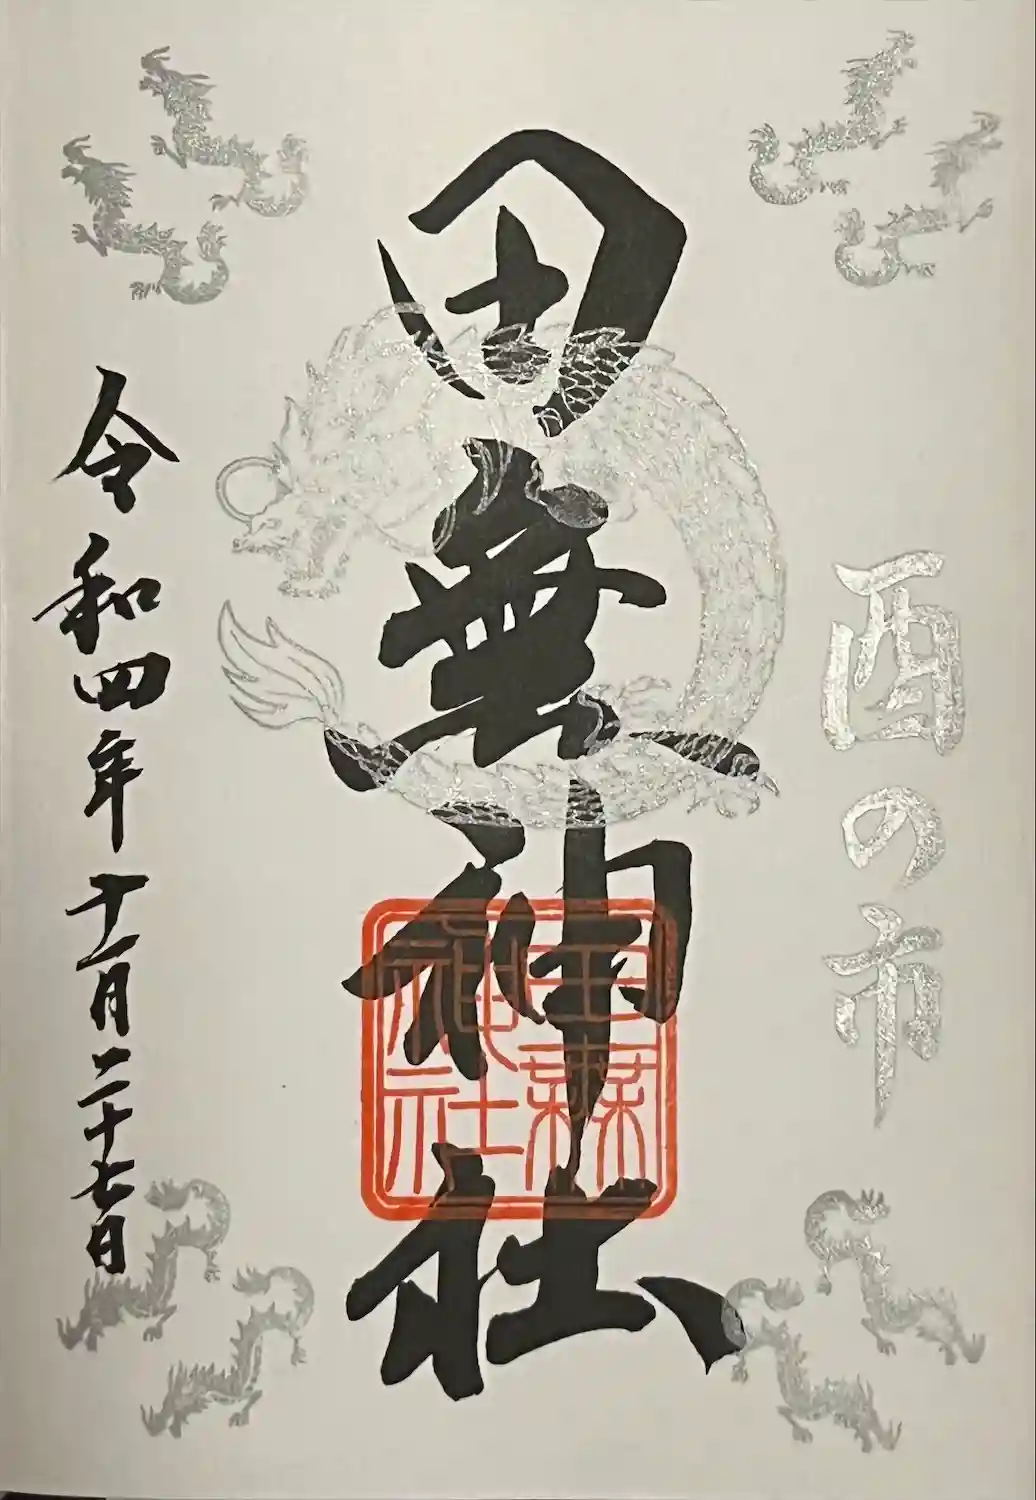 酉の市
田無神社
田無神社
令和四年十一月二十七日